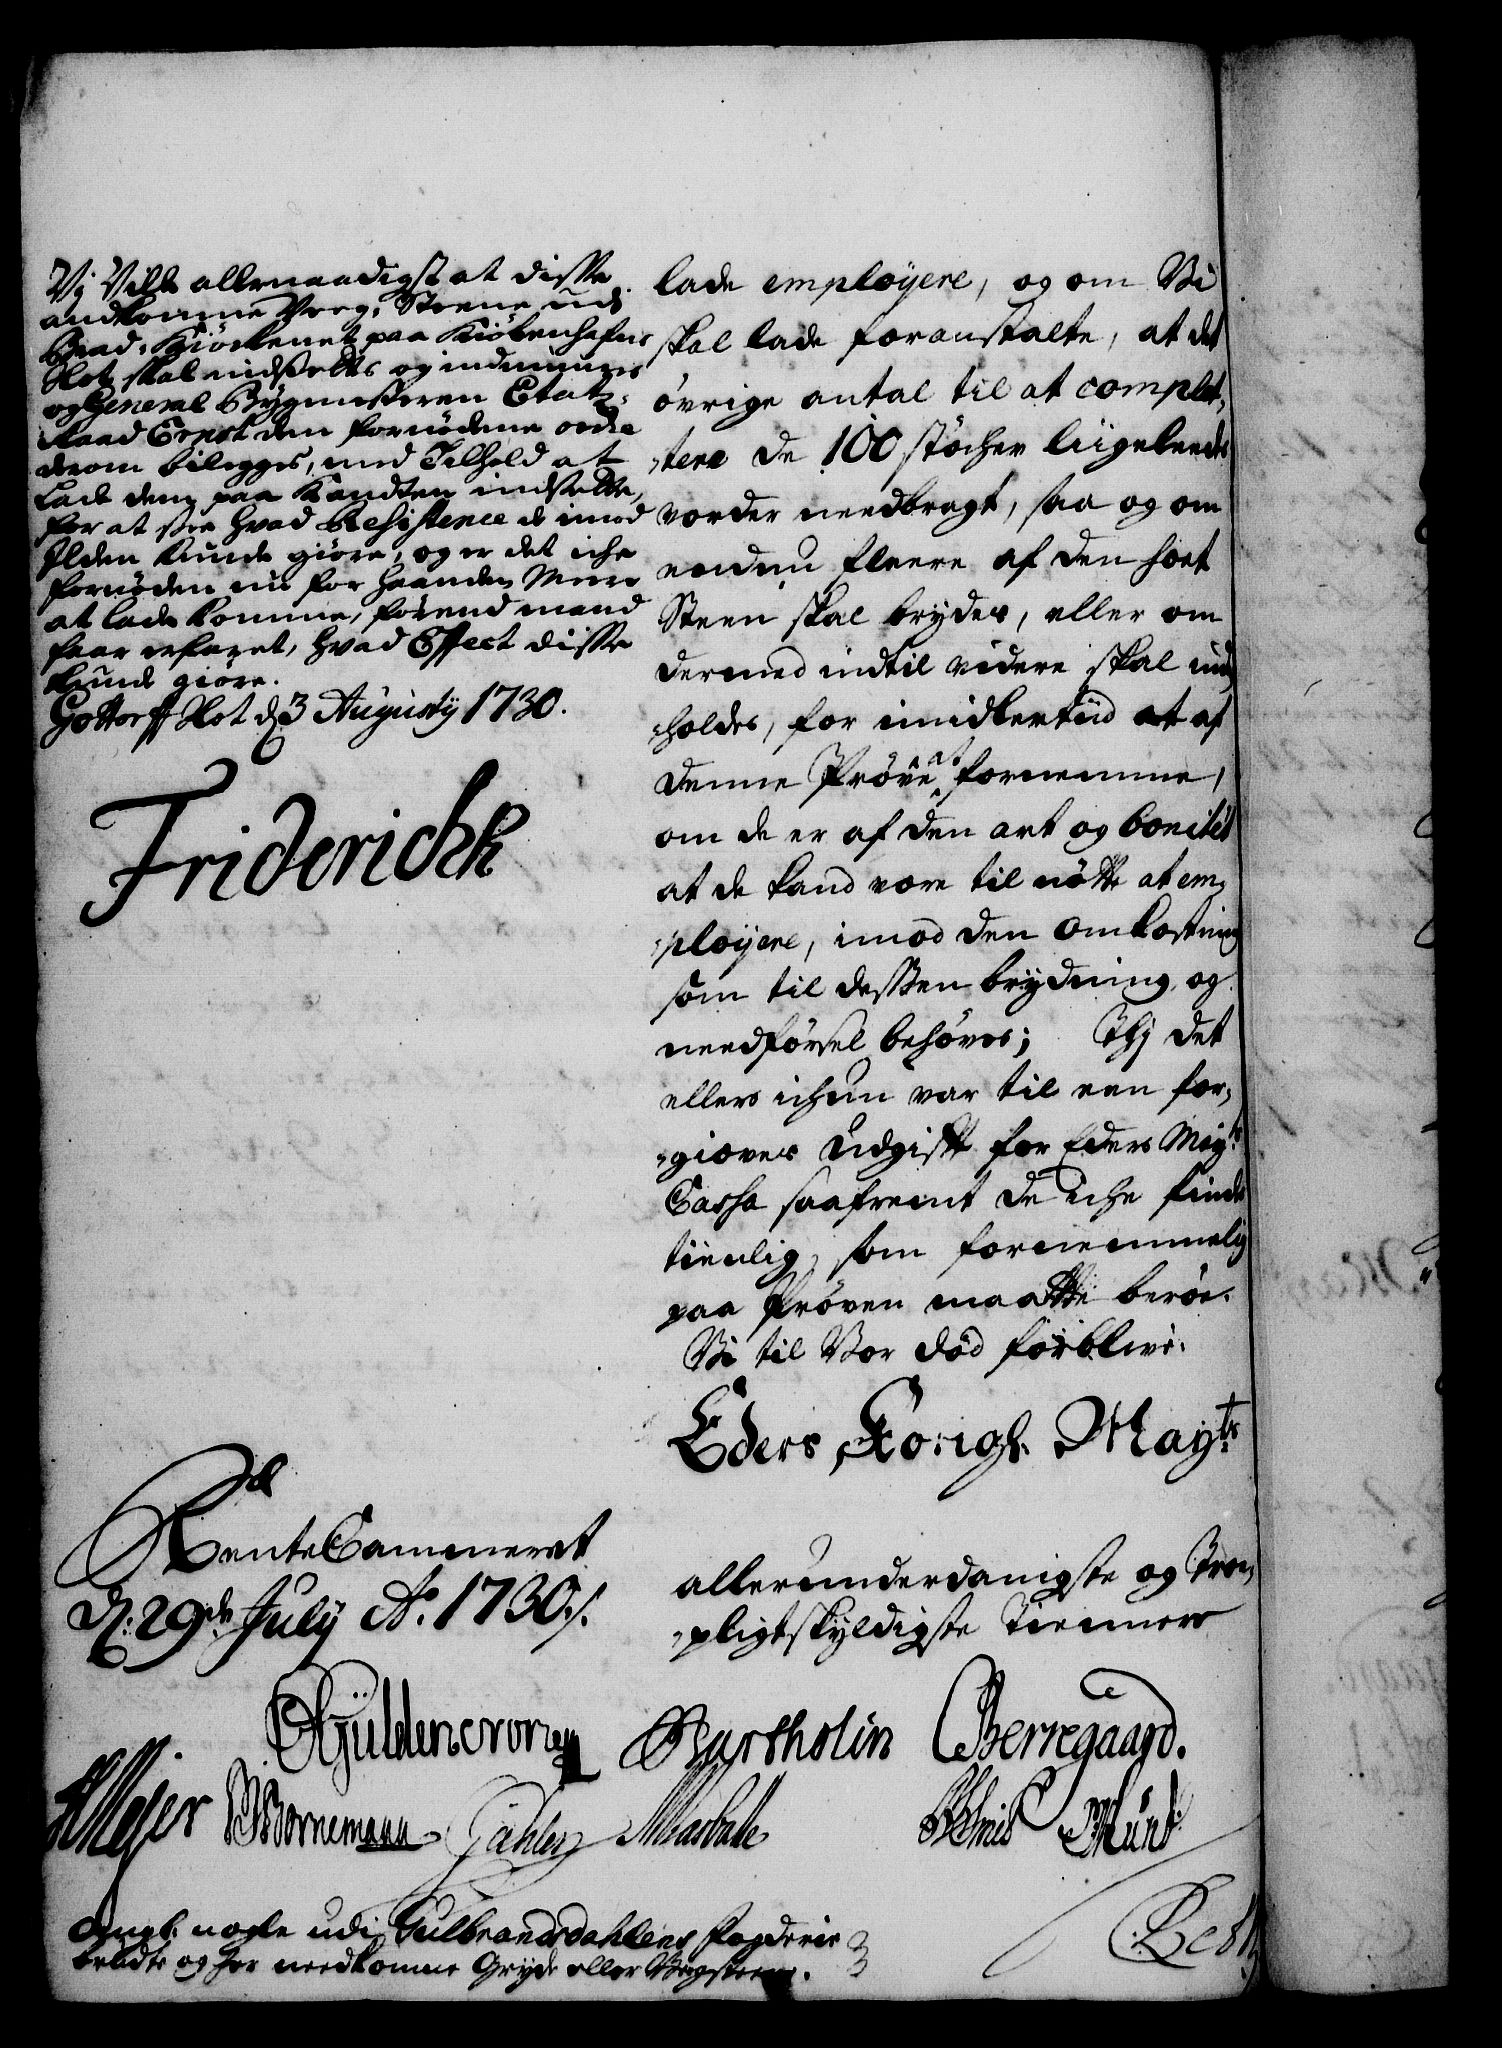 Vj Ville allernaadigst at disse
andkomne Veeg-Steene udj
Brad-Kiöckenet paa Kiöbenhafns
Slot, skal indsættes og indmuures
og General Bygmesteren Etatz-
Raad Ernst den fornödene ordre
derom bilegges, med Tilhold at
lade dem paa Kandten indsætte,
for at see hvad Resistence de imod
Ilden kunde giöre, og er det iche
fornöden nu for haanden Meere
at lade komme, förend mand
faar erfaret, hvad Effect disse
kunde giöre.
Gottorff Slot d. 3 Augusty 1730.
Friderich R
lade employere, og om Vi
skal lade foranstalte, at det
övrige antal til at complet-
tere de 100 stöcher liigeleedes
vorder needbragt, saa og om
endnu fleere af den sort
Steen skal brydes, eller om
dermed indtil videre skal ind-
holdes, for imidlertiid at af
denne Pröve at fornemme,
om de er af den art og bonitet
at de kand være til nötte at em-
ployere, imod den omkostning
som til dessen brydning og
needförsel behöves; Thj det
ellers ichun var til een for-
giæves Udgift for Eders Mayts
Cassa saafremt de iche findes
tienlig, som fornemmelig
paa Pröven maatte beröe.
Vi til Vor död forblive.
Eders Kongl. Mayts
allerunderdanigste og Troe-
pligtskyldigste Tienner
RenteCammeret
d. 29de July Ao. 1730.
Gÿldencrone Bartholin Berregaard.
HMejer Bornemann
Angl. nogle udi Gulbrandsdahlens fogderie
brudte og her needkomne Gryde eller Vegsteene.